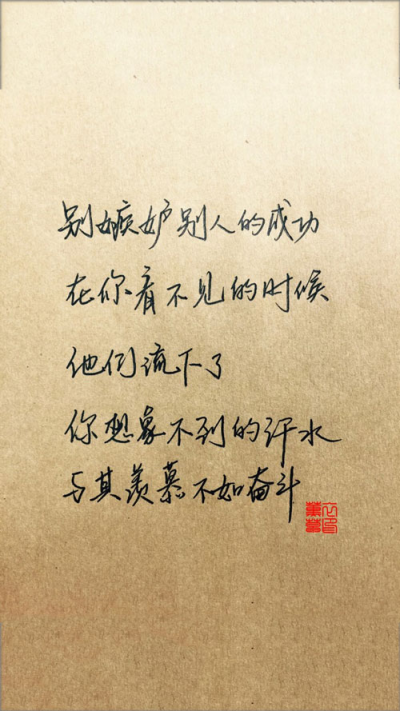 别嫉妒别人的成功
在你看不见的时候
他们流下了
你想象不到的汗水
与其羡慕不如奋斗